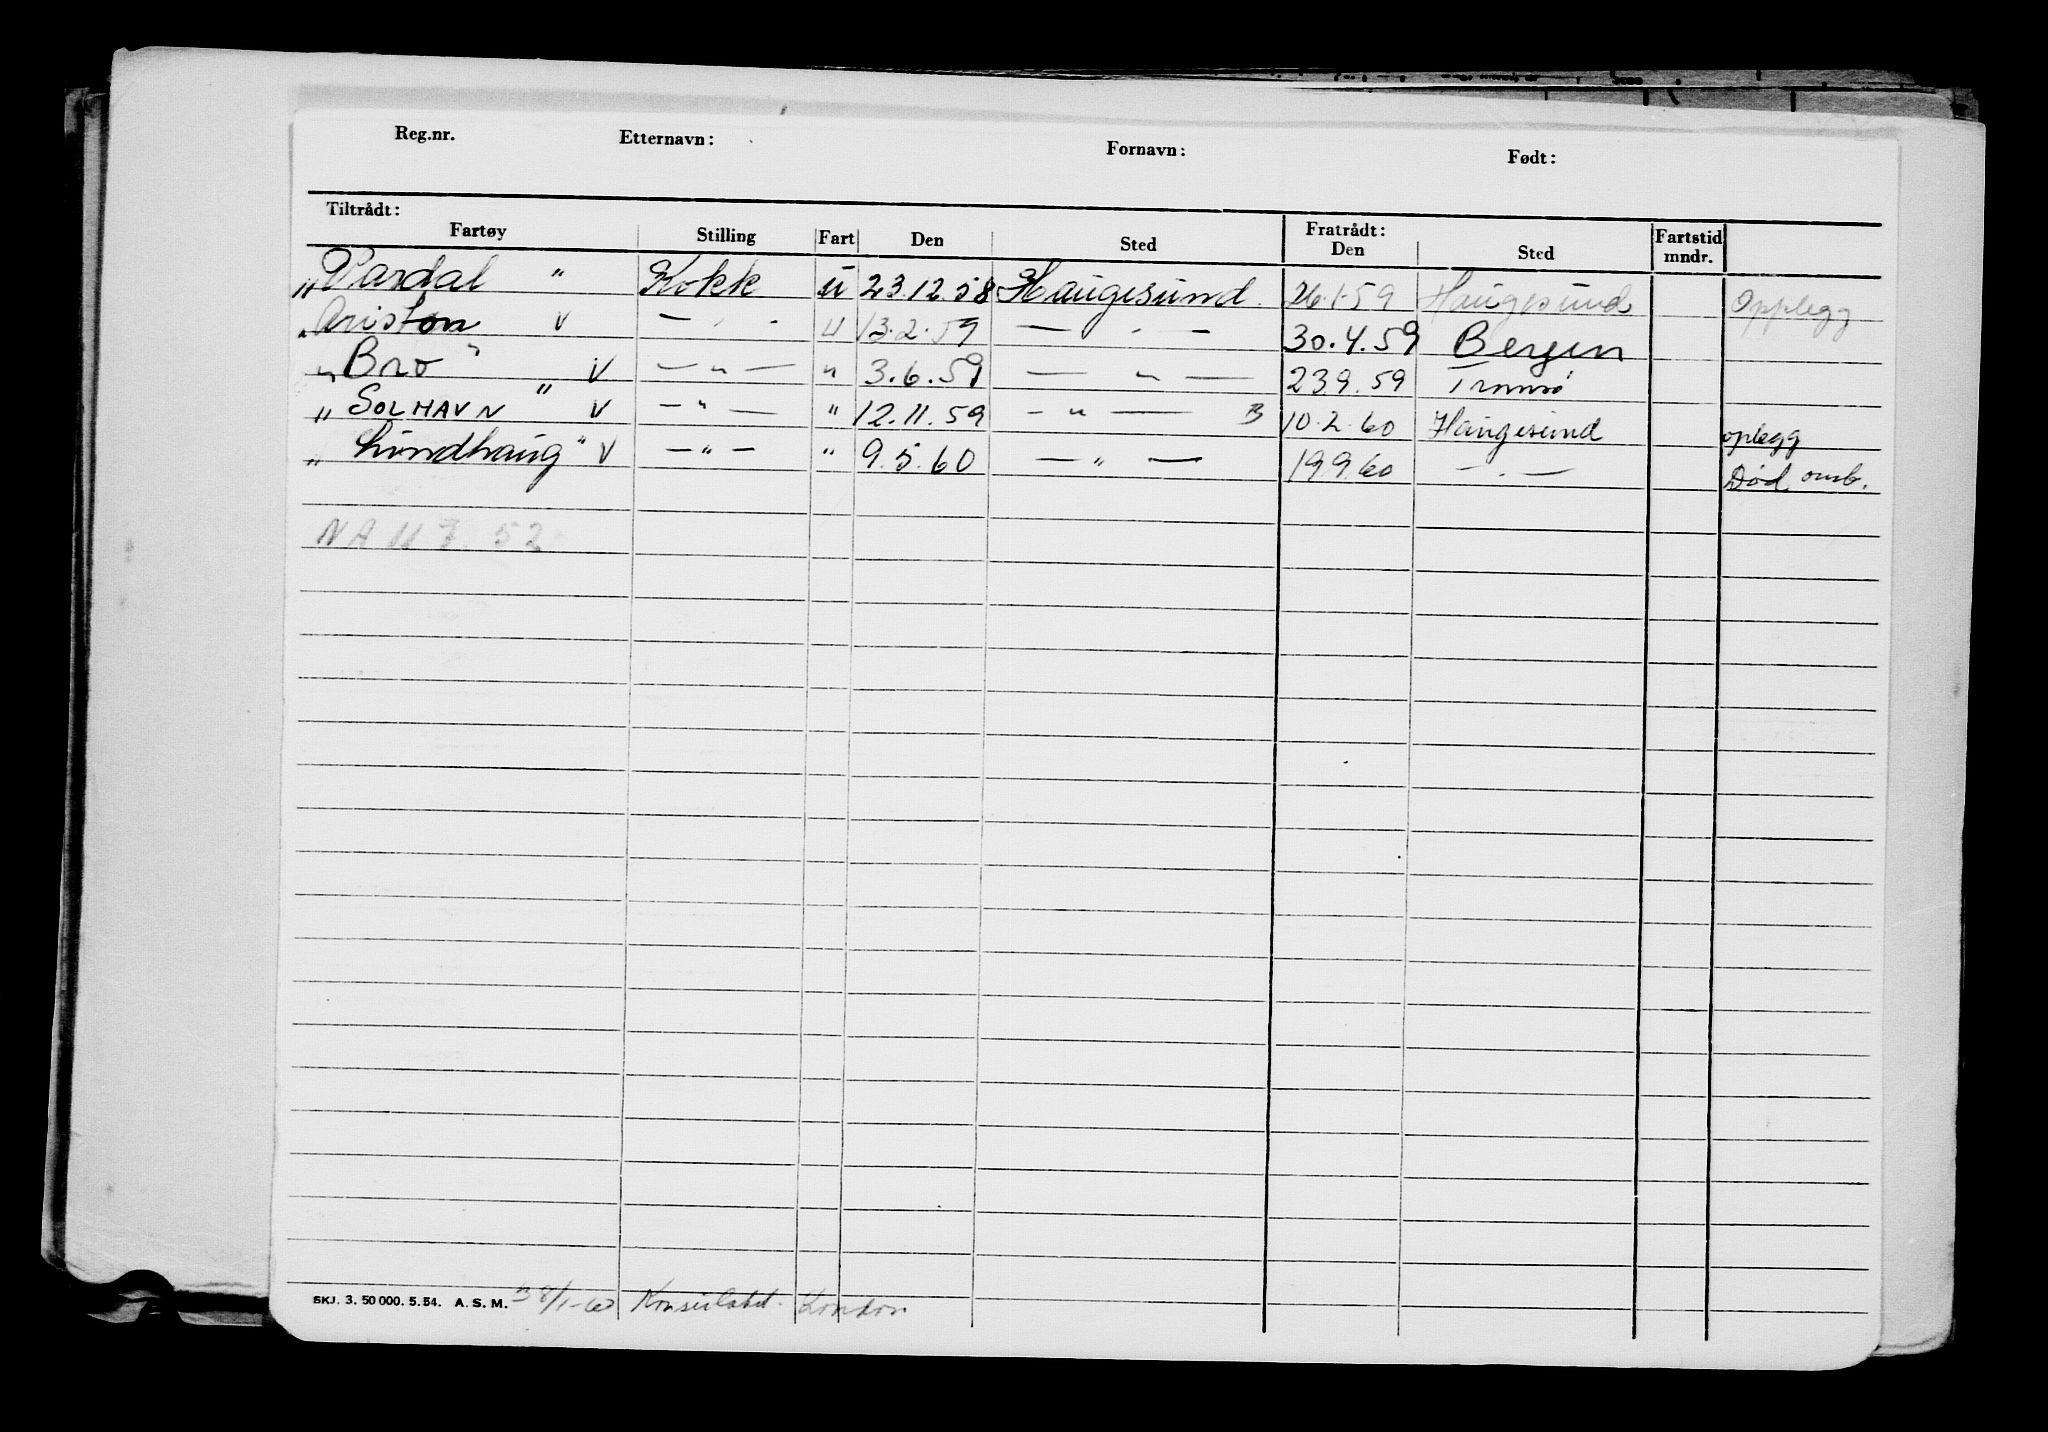 Reg.nr. Etternavn: Fornavn: Født:
Tiltrådt: Fratrådt:
Fartøy Stilling Fart Den Sted Den Sted Fartstid mndr.
„Pardal " Kokk u 23.12.58 Haugesund. 26.1.59 Haugesund Opplegg
„Ariston V — . - u 13.2.59 — . — 30.4.59 Bergen
„Bro" V — " — " 3.6.59 — " — 239.59 Tromsø
„ SOLHAVN " V — " — " 12.11.59 — " — B 10.2.60 Haugesund oplegg
„ Lindhaug" V — " — " 9.5.60 — " — 19960 — . — Død omb.
NA 52
SKJ. 3. 50 000. 5. 54. A. S. M. Konsulatet. London